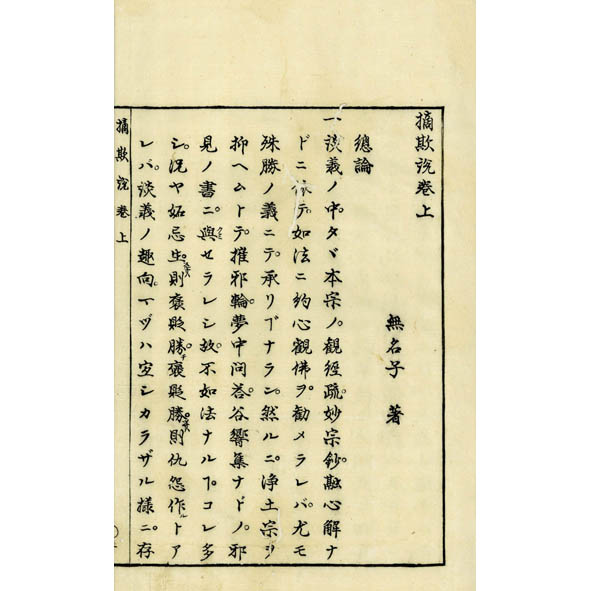 摘欺説巻上
無名子 著
總論
一談義ノ中タヾ本宗ノ観經疏妙宗鈔融心解ナ
ドニ依テ如法ニ約心觀佛ヲ勸メラレバ尤モ
殊勝ノ義ニテ承リヿナラン然ルニ浄土宗ヲ
抑ヘムトテ摧邪輪夢中问荅谷響集ナドノ邪
見ノ書ニ與セラレシ故不如法ナルヿコレ多
シ況ヤ妬忌生則褒貶勝褒貶勝則仇怨作トア
レバ談義ノ趣向一ヅハ空シカラザル様ニ存
摘欺説巻上